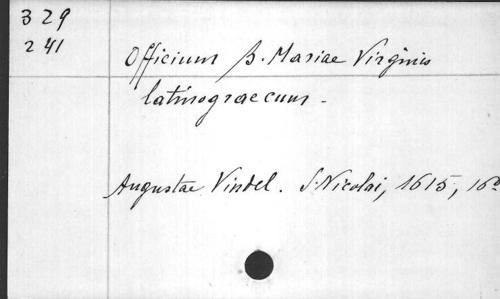 329
241
Officium B. Mariae Virginis
latinograecum.
Augustae Vindel. S. Nicolai, 1615, 16º